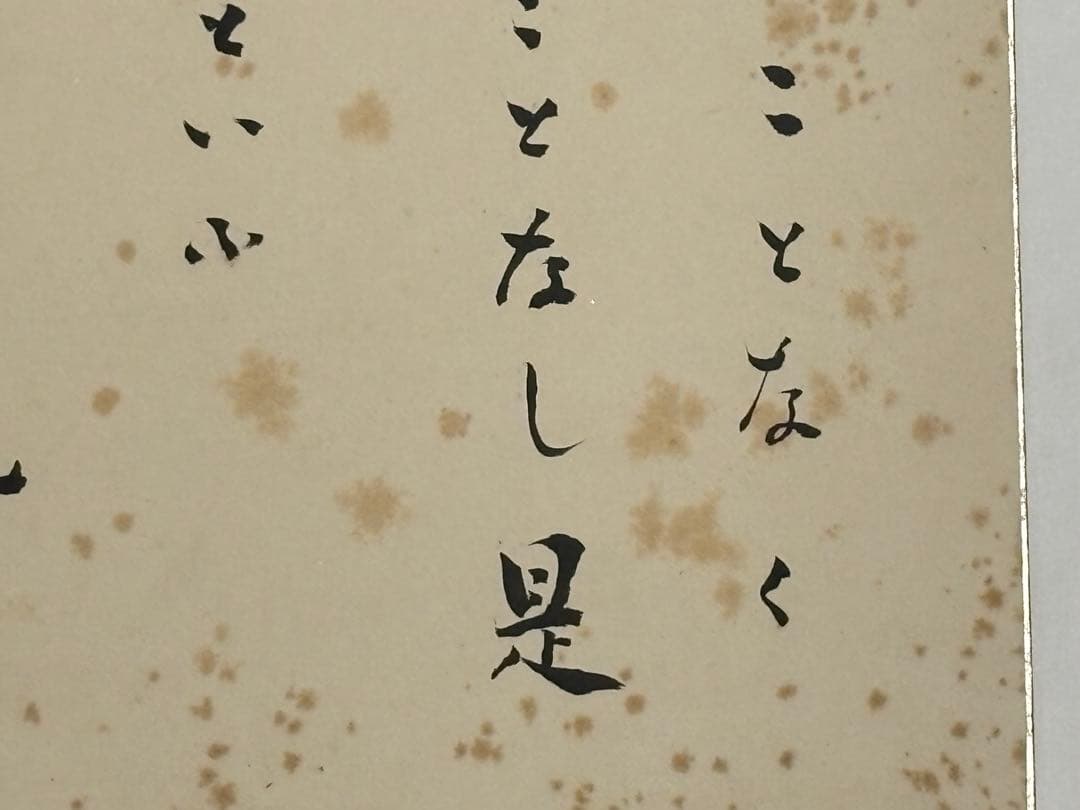 ことなく
ことなし是
といふ